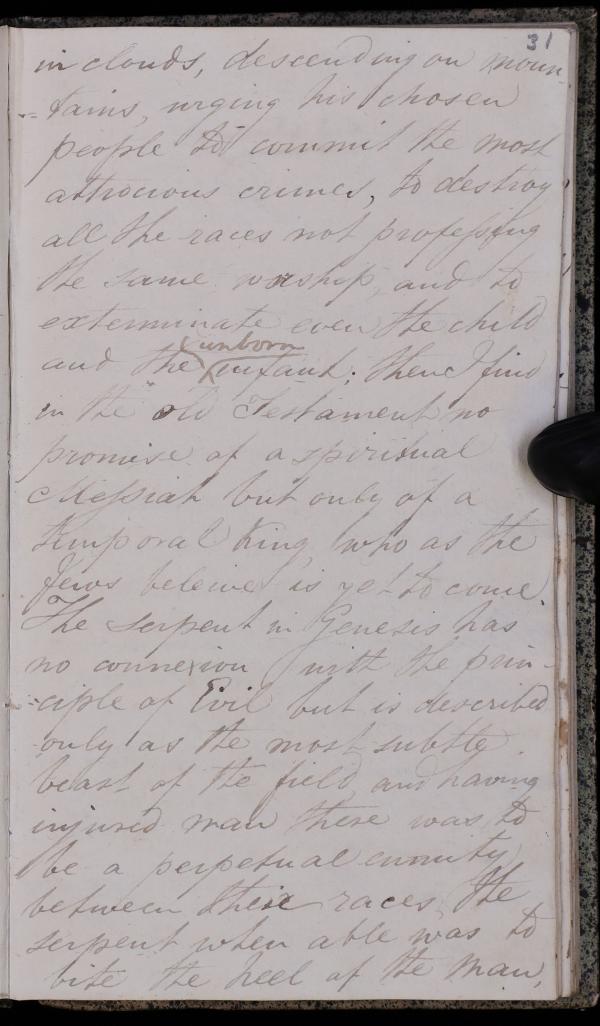 31
in clouds, descending on moun-
-tains, urging his chosen
people to commit the most
attrocious crimes, to destroy
all the races not professing
the same worship, and to
exterminate even the child
unborn
and the infant; then I find
in the old Testament no
promise of a spiritual
Messiah but only of a
temporal King, who as the
Jews beleive is yet to come.
The serpent in Genesis has
no connexion with the prin-
-ciple of Evil but is described
only as the most subtle
beast of the field, and having
injured man there was to
be a perpetual enmity
between their races, the
serpent when able was to
bite the heel of the man,